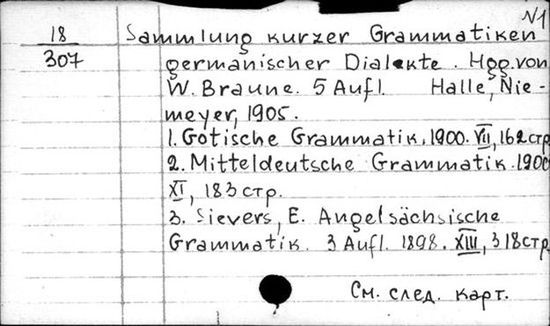 N1
18 Sammlung kurzer Grammatiken
307 germanischer Dialekte. Hgg. von
W. Braune. 5 Aufl. Halle, Nie-
meyer, 1905.
1. Gotische Grammatik. 1900. VII, 162 стр
2. Mitteldeutsche Grammatik. 1900
XI, 183 стр.
3. Sievers, E. Angelsächsische
Grammatik. 3 Aufl. 1898. XIII, 318 стр.
См. след. карт.